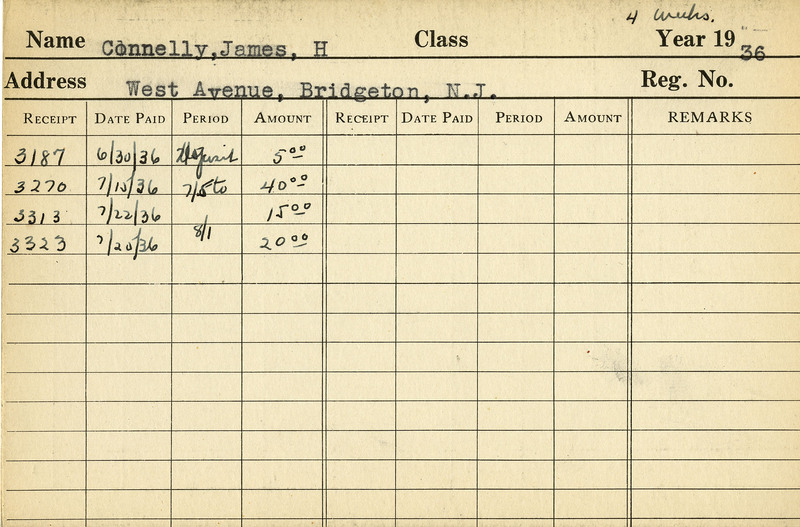 4 weeks.
Name Connelly,James, H Class Year 19 36
Address West Avenue, Bridgeton, N.J. Reg. No.
RECEIPT DATE PAID PERIOD AMOUNT RECEIPT DATE PAID PERIOD AMOUNT REMARKS
3187 6/30/36 Deposit 5.00
3270 7/15/36 7/5 to 40.00
3313 7/22/36 15.00
3323 8/1 20.00